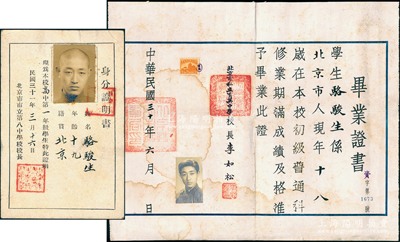 身分證明書
姓名 駱駿生
年齡 十九
籍貫 北京
現為本校高中第一年級學生特此證明
民國三十一年三月十六日
北京市市立第八中學校校長
畢業證書
學生駱駿生係
北京市人現年十八
歲在本校初級普通科
修業期滿成績及格准
予畢業此證
校長李如松
中華民國三十年六月 日
字第1673號